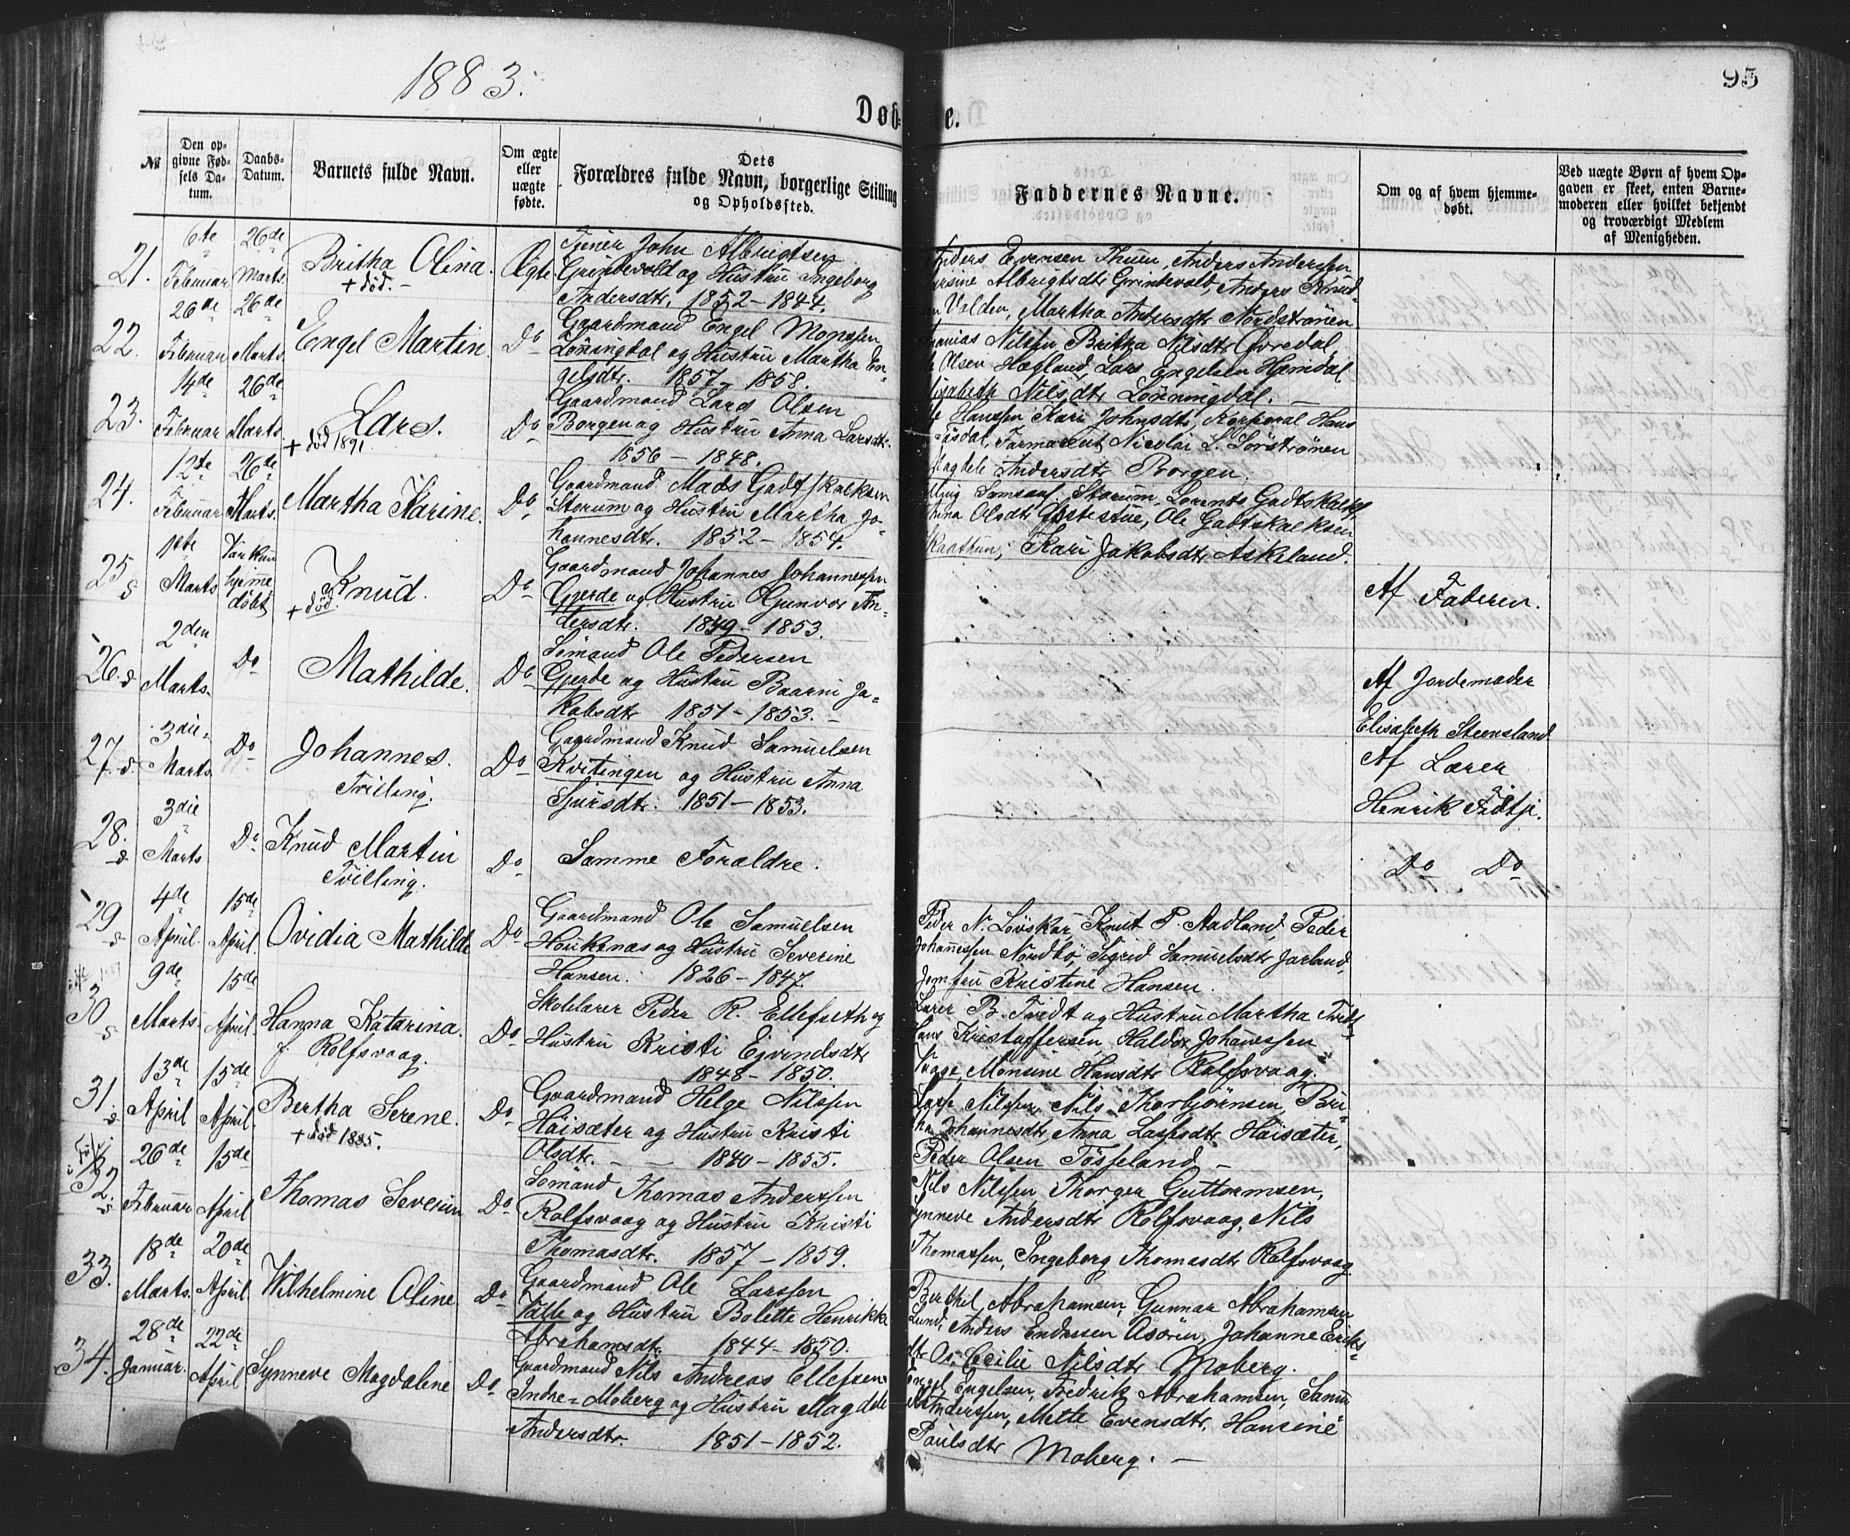 1883.
95
Døbte.
№
Den opgivne Fødsels Datum.
Daabs-Datum.
Barnets fulde Navn.
Om ægte eller uægte fødte.
Dets Forældres fulde Navn, borgerlige Stilling og Opholdssted.
Faddernes Navne.
Om og af hvem hjemmedøbt.
Ved uægte Børn af hvem Opgaven er skeet, enten Barnemoderen eller hvilket bekjendt og troværdigt Medlem af Menigheden.
21. 6te Februar 26de Marts. Britha Olina. + død. Ægte
Tjener John Albrigtsen
Grindevold og Hustru Ingeborg
Andersdtr. 1852 – 1844.
Anders Eversen Thuen, Anders Andersen
Albrigtsdtr Grindevold, Anders Knud-
Valden, Martha Andersdtr Nordstrønen
22. 26de Februar 26de Marts. Engel Martin. Do
Gaardmand Engel Monssen
Lønningdal og Hustru Martha En-
gelsdtr. 1857 – 1858.
Nilsen, Britha Nilsdtr Øvredal
Olsen Hegland, Lars Engelsen Hamdal
Elisabeth Nilsdtr Lønningdal. –
23. 4de Februar 26de Marts. Lars. + død 1891. Do
Gaardmand Lars Olsen
Borgen og Hustru Anna Larsdtr.
1856 – 1848.
Hanssen Kari Johnsdtr, Korporal Hans
Farmarent Nicolai L. Sørstrønen
Magdele Andersdtr Borgen.
24. 12te Februar 26de Marts. Martha Karine. Do
Gaardmand Mads Gadtskalksen
Storum og Hustru Martha Jo-
hannesdtr. 1852 – 1854.
Samson Storum, Lorents Gadtskalks
Anna Olsdtr Østestue, Ole Gadtskalksen
Raathun, Kari Jakobsdtr Askeland.
25 d 1ste Marts Var kun hjemmedøbt Knud. + død. Do
Gaardmand Johannes Johannessen
Gjerde og Hustru Gunvor An-
dersdtr. 1849 – 1853.
Af Faderen.
26. d 2den Marts. Do Mathilde. Do
Sømand Ole Pedersen
Gjerde og Hustru Baarni Ja-
kobsdtr 1851 – 1853. –
Af Jordemoder
Elisabeth Steensland
27. d. 3die Marts Do Johannes. Tvilling. Do
Gaardmand Knud Samuelsen
Kvitingen og Hustru Anna
Sjursdtr. 1851 – 1853.
Af Lærer
Henrik Fidtje.
28. d 3die Marts Do Knud Martin Tvilling. Do
Samme Forældre.
Do Do
29 d 4de April. 15de April. Ovidia Mathilde Do
Gaardmand Ole Samuelsen
Haukenæs og Hustru Severine
Hansen. 1826 – 1847.
Peder N. Løvskar, Knut P. Aadland, Peder
Johannessen Nordbø, Sigrid Samuelsdtr Jarland,
Jomfru Kristine Hansen.
30 d 9de Marts. 15de April. Hanna Katarina f. Rolfsvaag. Do
Skolelærer Peder R. Ellefseth og
Hustru Kristi Ejvindsdtr
1848 – 1850.
Lærer B. Tvedt og Hustru Martha Tvedt
Hans Kristoffersen, Haldor Johannessen
Vaage Monsine Hansdtr Rolfsvaag.
31. d 13de April 15de April Bertha Serene. + død 1885. Do
Gaardmand Helge Nilssen
Haisæter og Hustru Kristi
Olsdtr. – – 1840 – 1855.
Lasse Nilssen, Nils Thorbjørnsen, Bri-
tha Johannesdtr, Anna Lassesdtr Haisæter,
Peder Olsen Tøsseland –
32. d 26de Februar 15de April Thomas Severin Do
Sømand Thomas Anderssen
Rolfsvaag og Hustru Kristi
Thomasdtr. 1857 – 1859.
Nils Nilssen, Thorger Guttormsen,
Synneve Andersdtr Rolfsvaag, Nils
Thomassen, Ingeborg Thomasdtr Rolfsvaag
33. 18de Marts. 20de April Wilhelmine Oline Do
Gaardmand Ole Larssen
Valle og Hustru Bolette Henrikke
Abrahamsdtr. 1844 – 1850.
Berthel Abrahamsen, Gunnar Abrahamsen
Lund, Anders Endresen Asøren, Johanne Eriks-
dtr Os Cecilie Nilsdtr Moberg.
34. 28de Januar. 22de April Synneve Magdalene Do
Gaardmand Nils Andreas Ellefsen
Indre-Moberg og Hustru Magdele
Andersdtr. 1851 – 1852.
Engel Engelsen, Fredrik Abrahamsen, Samu
Anderssen, Mette Evensdtr, Hansine
Paulsdtr Moberg. –